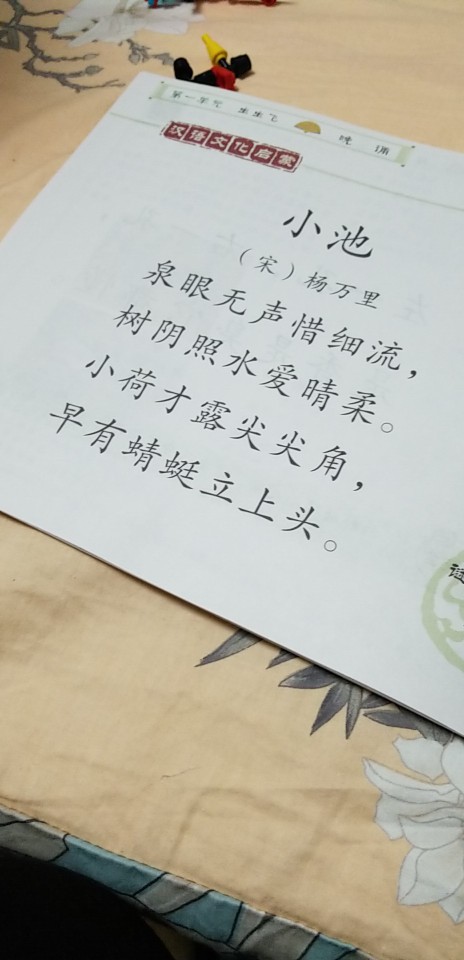 汉语文化启蒙
小池
（宋）杨万里
泉眼无声惜细流，
树阴照水爱晴柔。
小荷才露尖尖角，
早有蜻蜓立上头。